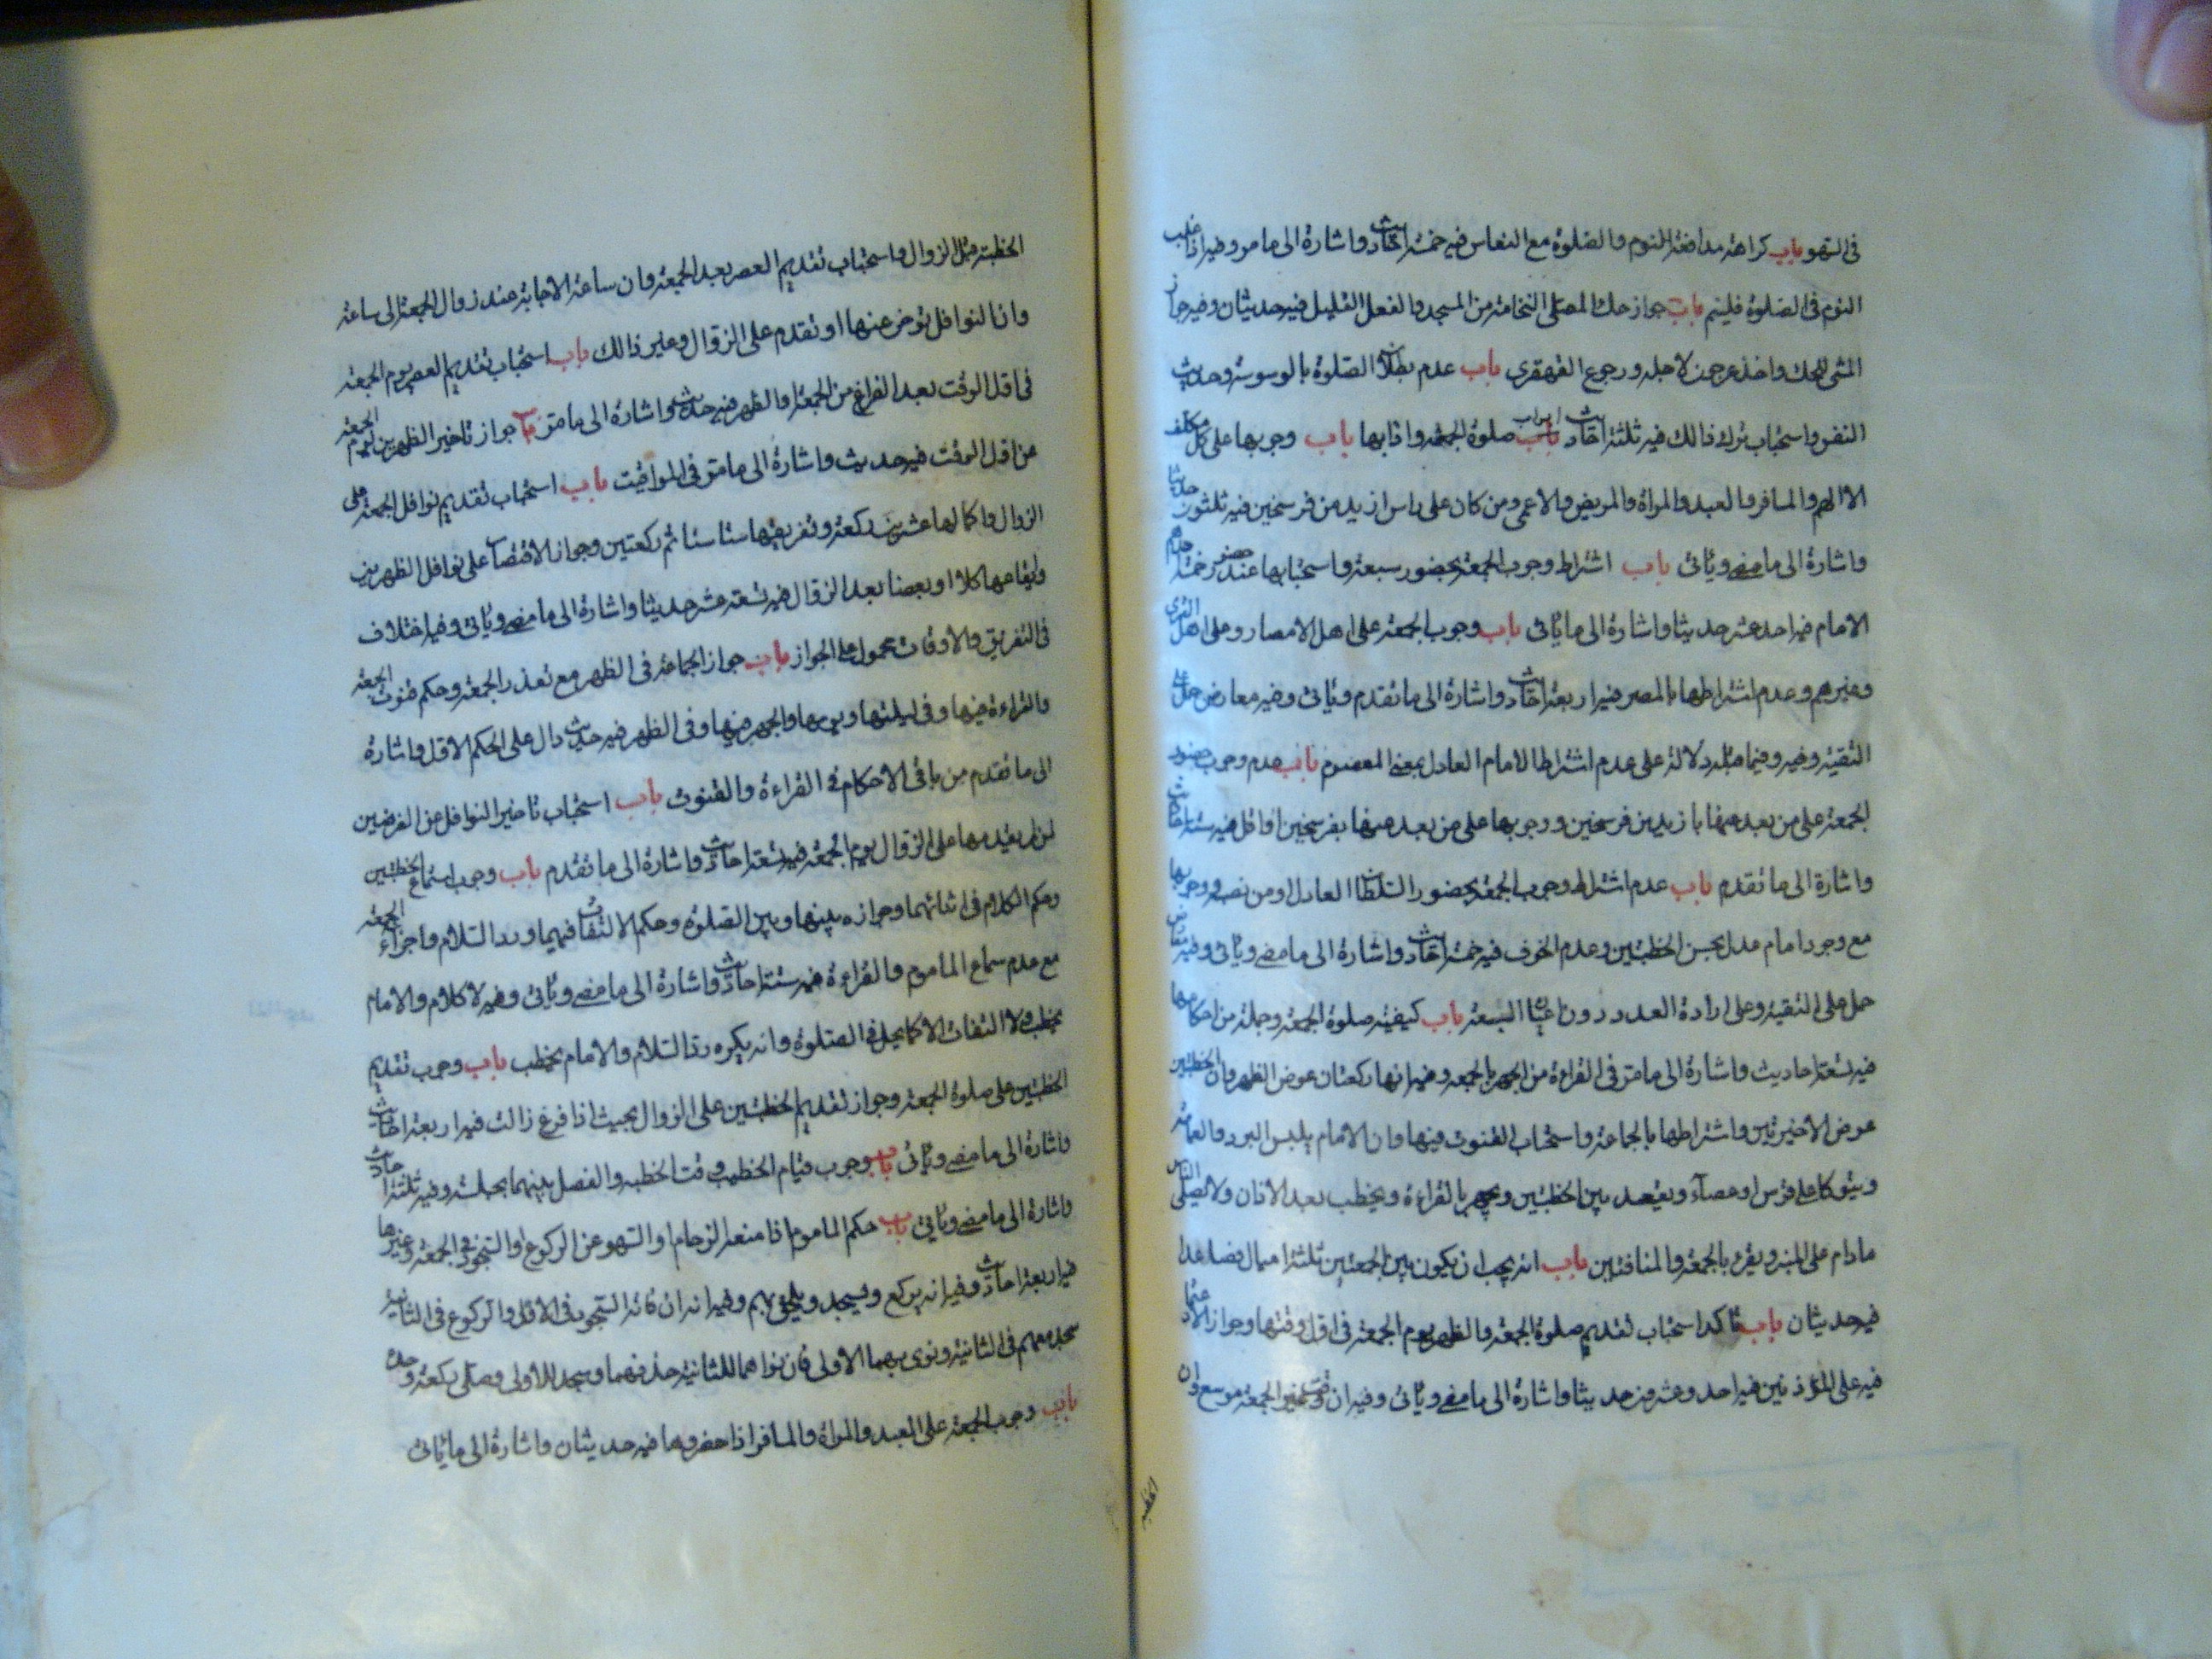 في السهو باب كراهة مدافعة النوم والصلوة مع النعاس فيه خمسة احاديث واشارة الى ما مر وفيه اذا غلب
النوم في الصلوة فلينم باب جواز حك المصلى النخامة من المسجد والفعل القليل فيه حديثان وفيه جواز
المشي للحك واخذ عرجون لاجله ورجوع القهقرى باب عدم بطلان الصلوة بالوسوسة وحديث
النفس واستحباب ترك ذالك فيه ثلثة احاديث ابواب صلوة الجمعة وادابها باب وجوبها على كل مكلف
الا الهم والمسافر والعبد والمراة والمريض والاعمى ومن كان على راس ازيد من فرسخين فيه ثلثون حديثا
واشارة الى ما مضى وياتى باب اشتراط وجوب الجمعة بحضور سبعة واستحبابها عند حضور خمسة احدهم
الامام فيه احد عشر حديثا واشارة الى ما ياتى باب وجوب الجمعة على اهل الامصار وعلى اهل القرى
وغيرهم وعدم اشتراطها بالمصر فيه اربعة احاديث واشارة الى ما تقدم وياتى وفيه معارض حمل على
التقية وفيه وفيما قبله دلالة على عدم اشتراط الامام العادل بمعنى المعصوم باب عدم وجوب حضور
الجمعة على من بعد عنها بازيد من فرسخين ووجوبها على من بعد عنها بفرسخين او اقل فيه ستة احاديث
واشارة الى ما تقدم باب عدم اشتراط وجوب الجمعة بحضور السلطان العادل او من نصبه ووجوبها
مع وجود امام عدل يحسن الخطبتين وعدم الخوف فيه خمسة احاديث واشارة الى ما مضى وياتى وفيه معارض
حمل على التقية وعلى ارادة العدد دون اعيان السبعة باب كيفية صلوة الجمعة وجملة من احكامها
فيه تسعة احاديث واشارة الى ما مر في القراءة من الجهر بالجمعة وفيه انها ركعتان عوض الظهر وان الخطبتين
عوض الاخيرتين واشتراطها بالجماعة واستحباب القنوت فيها وان الامام يلبس البرد والعمامة
ويتوكا على قوس او عصا ويقعد بين الخطبتين ويجهر بالقراءة ويخطب بعد الاذان ولا يصلى الناس
مادام على المنبر ويقرء بالجمعة والمنافقين باب انه يجب ان يكون بين الجمعتين ثلثة اميال فصاعدا
فيه حديثان باب تاكد استحباب تقديم صلوة الجمعة والظهر يوم الجمعة في اول وقتها وجواز الاعتماد
فيه على المؤذنين فيه احد وعشرون حديثا واشارة الى ما مضى وياتى وفيه ان وقت غير الجمعة موسع وان
الخطبة
الخطبة قبل الزوال واستحباب تقديم العصر بعد الجمعة وان ساعة الاجابة عند زوال الجمعة الى ساعة
وان النوافل تؤخر عنها او تقدم على الزوال وغير ذالك باب استحباب تقديم العصر يوم الجمعة
في اول الوقت بعد الفراغ من الجمعة او الظهر فيه حديث واشارة الى ما مر باب جواز تاخير الظهرين يوم الجمعة
عن اول الوقت فيه حديث واشارة الى ما مر في المواقيت باب استحباب تقديم نوافل الجمعة على
الزوال واكمالها عشرين ركعة وتفريقها ستا ستا ثم ركعتين وجواز الاقتصار على نوافل الظهرين
وايقاعها كلا او بعضا بعد الزوال فيه تسعة عشر حديثا واشارة الى ما مضى وياتى وفيه اختلاف
في التفريق والاوقات محمول على الجواز باب جواز الجماعة في الظهر مع تعذر الجمعة وحكم قنوت الجمعة
والقراءة فيها وفي ليلتها ويومها والجهر فيها وفي الظهر فيه حديث دال على الحكم الاول واشارة
الى ما تقدم من باقى الاحكام في القراءة والقنوت باب استحباب تاخير النوافل عن الفرضين
لمن لم يقدمها على الزوال يوم الجمعة فيه تسعة احاديث واشارة الى ما تقدم باب وجوب استماع الخطبتين
وحكم الكلام في اثنائهما وجوازه بينها وبين الصلوة وحكم الالتفات فيهما ورد السلام واجزاء الجمعة
مع عدم سماع الماموم والقراءة فيه ستة احاديث واشارة الى ما مضى وياتى وفيه لا كلام والامام
يخطب ولا التفات الا كما يحل في الصلوة وانه يكره رد السلام والامام يخطب باب وجوب تقديم
الخطبتين على صلوة الجمعة وجواز تقديم الخطبتين على الزوال بحيث اذا فرغ زالت فيه اربعة احاديث
واشارة الى ما مضى وياتى باب وجوب قيام الخطيب وقت الخطبة والفصل بينهما بجلسة وفيه ثلثة احاديث
واشارة الى ما مضى وياتى باب حكم الماموم اذا منعه الزحام او السهو عن الركوع او السجود في الجمعة وغيرها
فيه اربعة احاديث وفيه انه يركع ويسجد ويلحق بهم وفيه انه ان فاته السجود في الاولى والركوع في الثانية
سجد معهم في الثانية ونوى بهما الاولى فان نواهما للثانية حذفهما وسجد للاولى وصلى ركعة وحده
باب وجوب الجمعة على العبد والمراة والمسافر اذا حضروها فيه حديثان واشارة الى ما ياتى